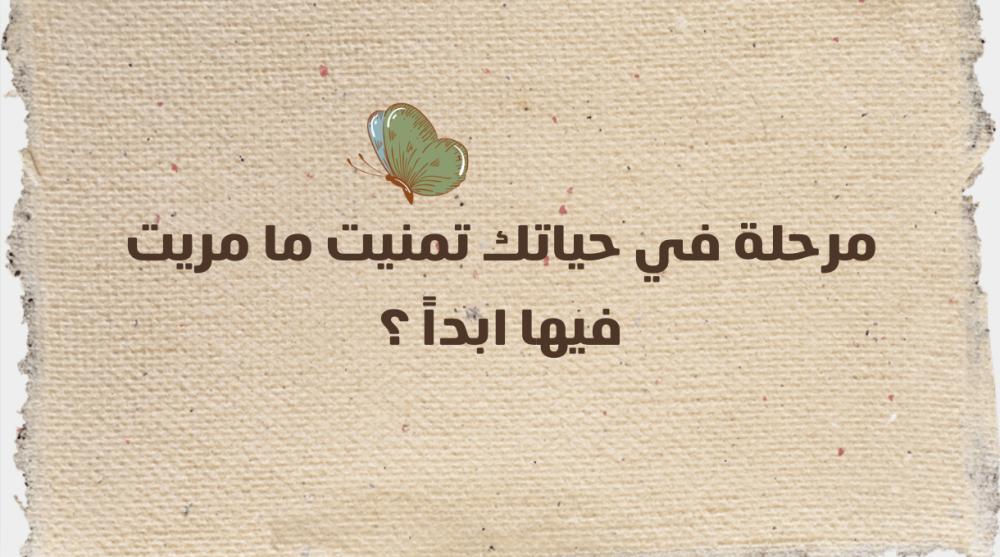 مرحلة في حياتك تمنيت ما مريت
فيها ابداً ؟